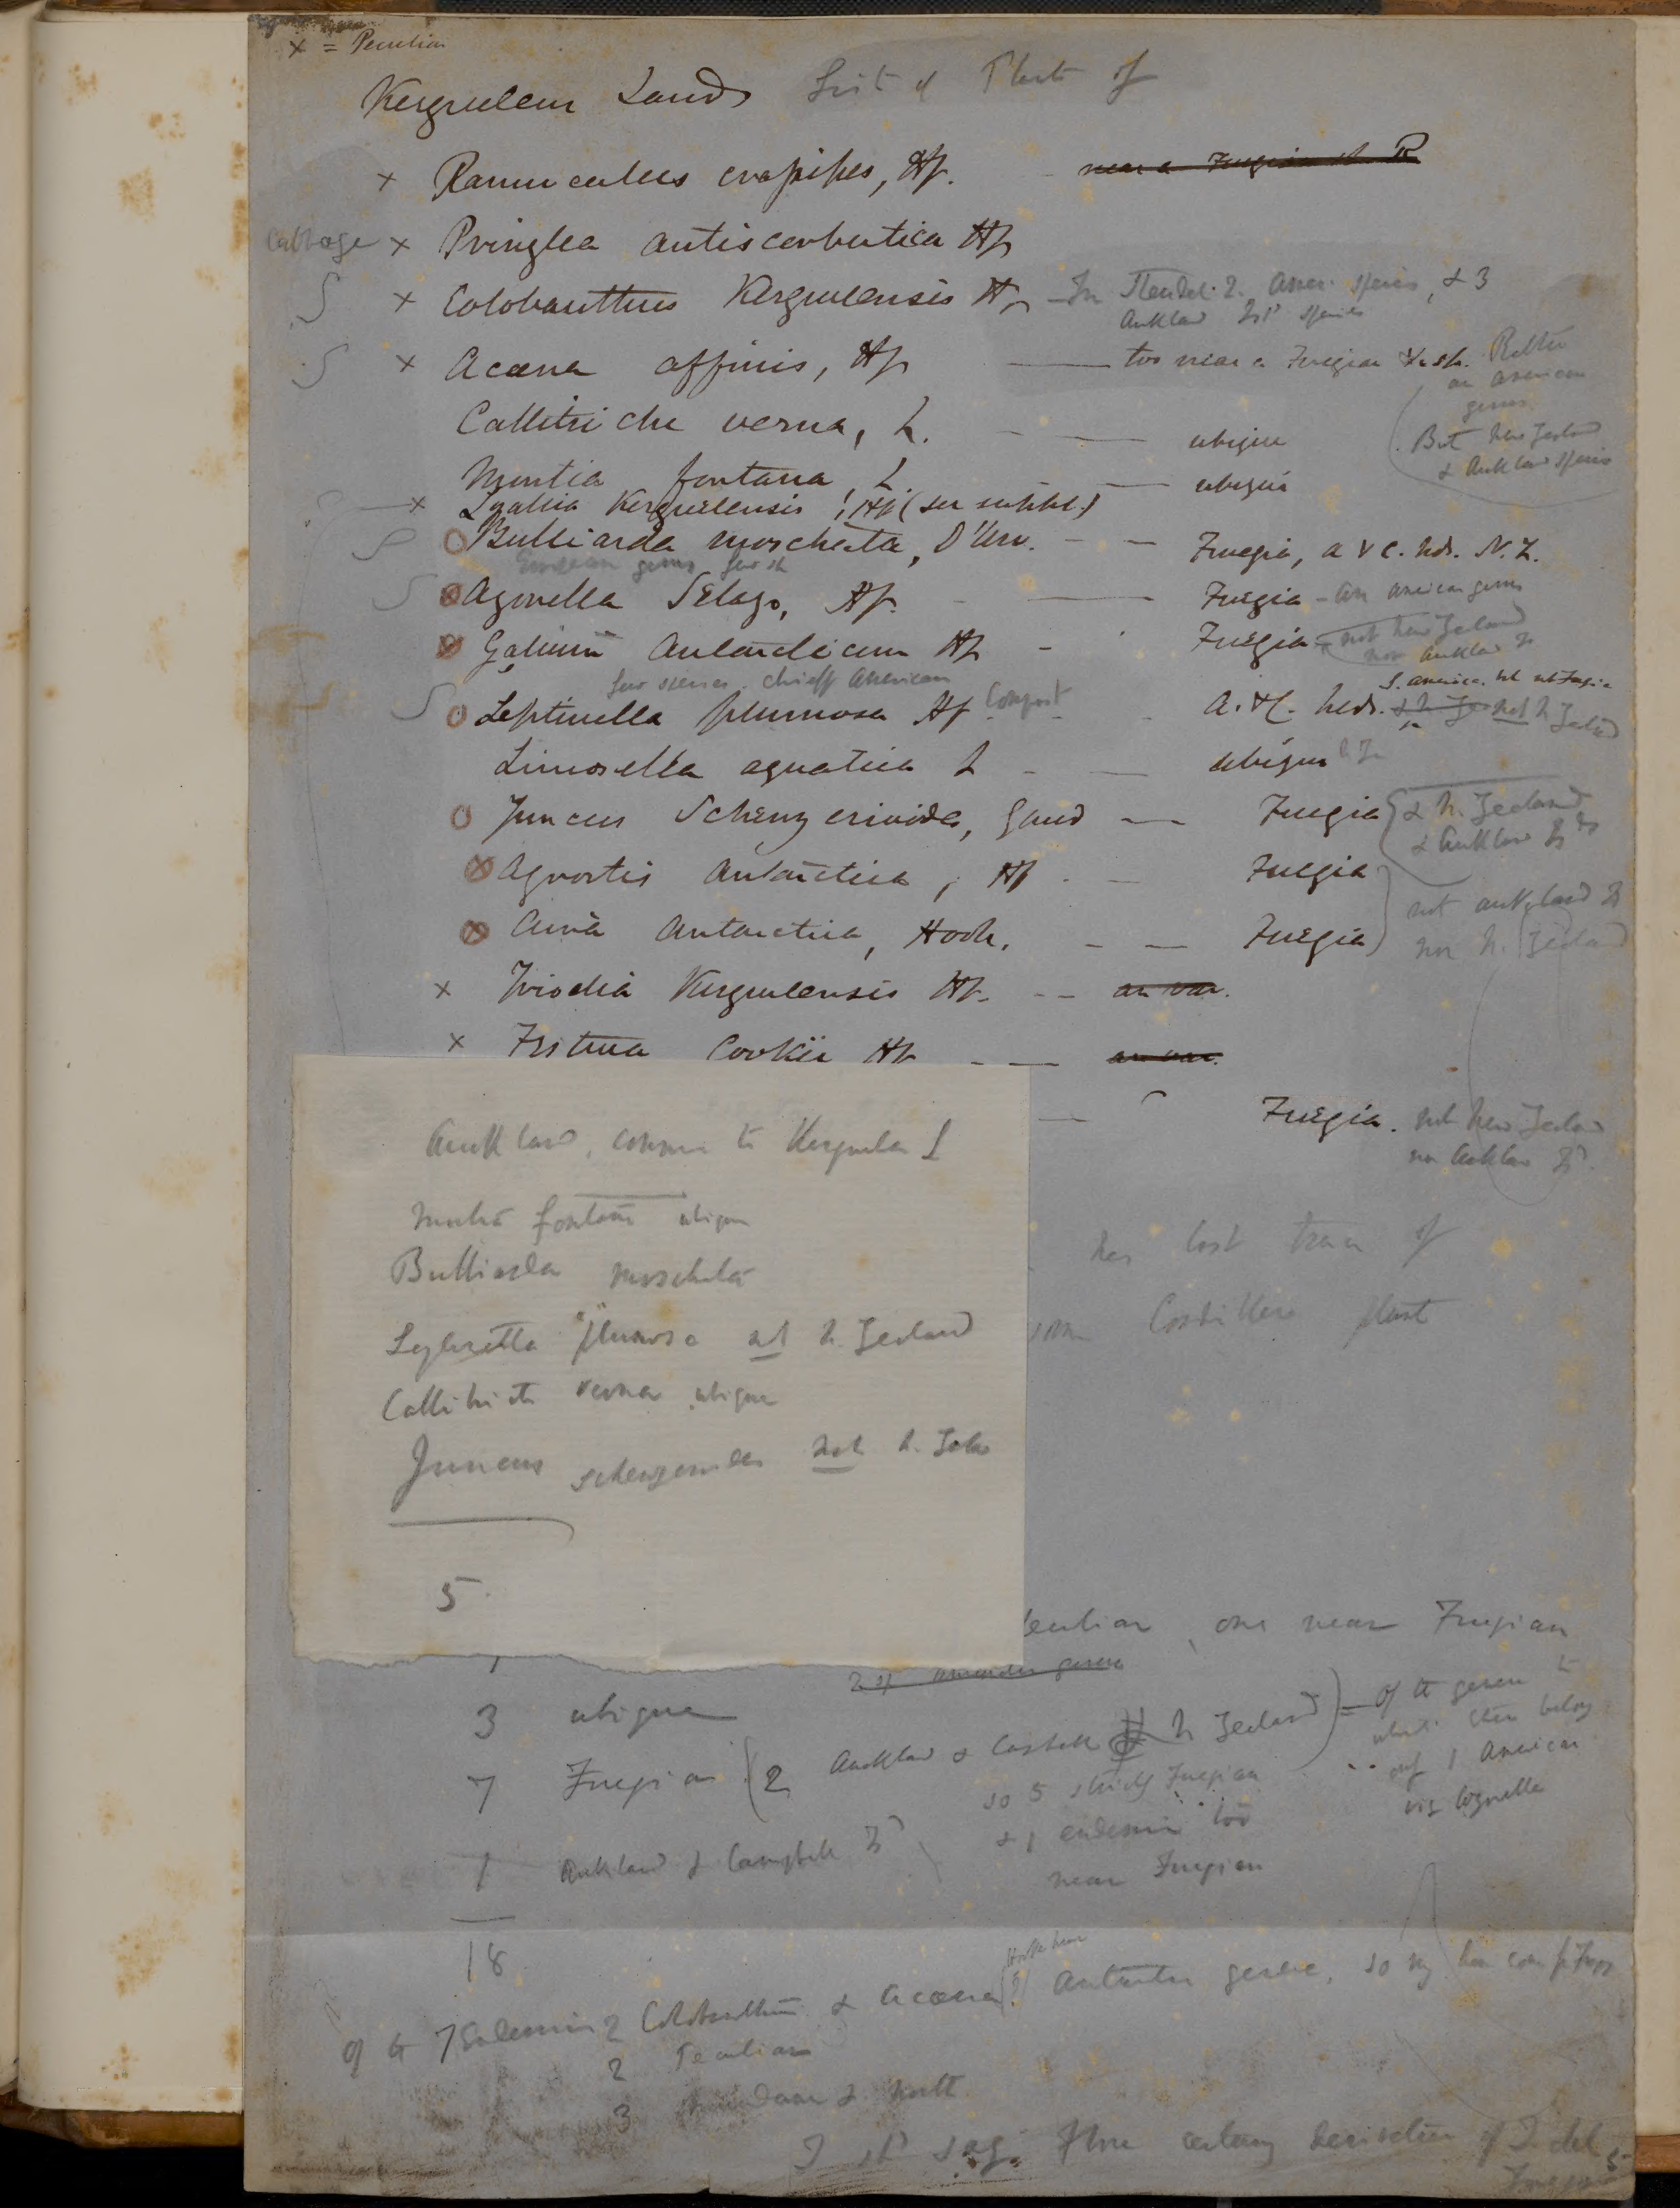 x = Peculiar
Kerguelen Land List of Plants of
x Ranunculus crassipes, Hf. near a Fuegian
Cabbage x Pringlea antiscorbutica Hf
S x Colobanthus Kerguelensis Hf - In Steudel 2. Amer. species, & 3
Auckland Isd species
S x Acæna affinis, Hf — too near a Fuegian Rather
an American
genus.
Callitriche verna, L. - — ubique But New Zealand
& Auckland species
Montia fontana L. — ubique
x Lyallia Kerguelensis, Hf (see suppl.)
S O Bulliarda moschata, D'Urv. - - Fuegia, A & C. Islds. N.Z.
European genus few
S Azorella Selago, Hf. - — Fuegia - an American genus
Galium Antarcticum Hf - Fuegia - not New Zealand
nor Auckland Is
few species. chiefly American
S. America. but not Fuegia
S O Leptinella plumosa Hf Compost A. & C. Islds. not N Zealand
Limosella aquatica L - — ubique
O Juncus Scheuzerioides, Gaud — Fuegia & N. Zealand
& Auckland Isds
Agrostis Antarctica, Hf - — Fuegia
not Auckland Is
Aira Antarctica, Hook. - — Fuegia
nor N. Zealand
x Triodia Kerguelensis Hf. - - an var.
x Festuca Cookii Hf - — an var.
— Fuegia. not New Zealand
nor Auckland Isd.
Auckland, common to Kerguelen L
Montia fontana ubique
Bulliarda moschata
Leptinella plumosa not N. Zealand
Callitriche verna ubique
Juncus scheuzerioides not N. Zeal
5
has lost trace of
Cordillera plant
peculiar, one near Fuegian
3 ubique
7 Fuegian (2 Auckland & Campbell & N Zealand) = of the genera
so 5 strictly Fuegian
only 1 American
viz Azorella
& 1 endemic too
near Fuegian
1 Auckland & Campbell Isd
18
of the 7 Endemic 2 Colobanthus & Acæna (?) Antarctic genera, so may have come fr
2 Peculiar
3 & north
I shd say. Flora certainly derivation of T. del
Fuego